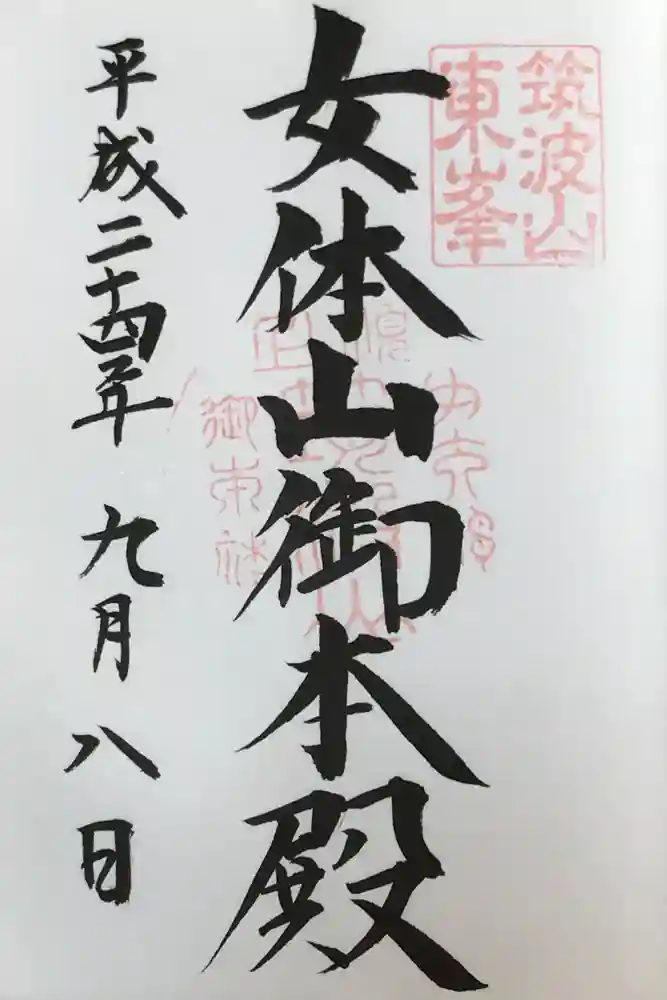 筑波山
東峯
女体山御本殿
平成二十四年 九月 八日